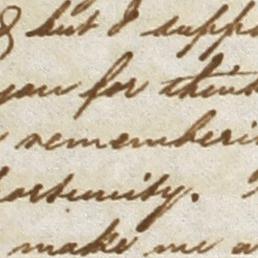 & but I suppo
you for think
rememberi
ortunity.
make me a